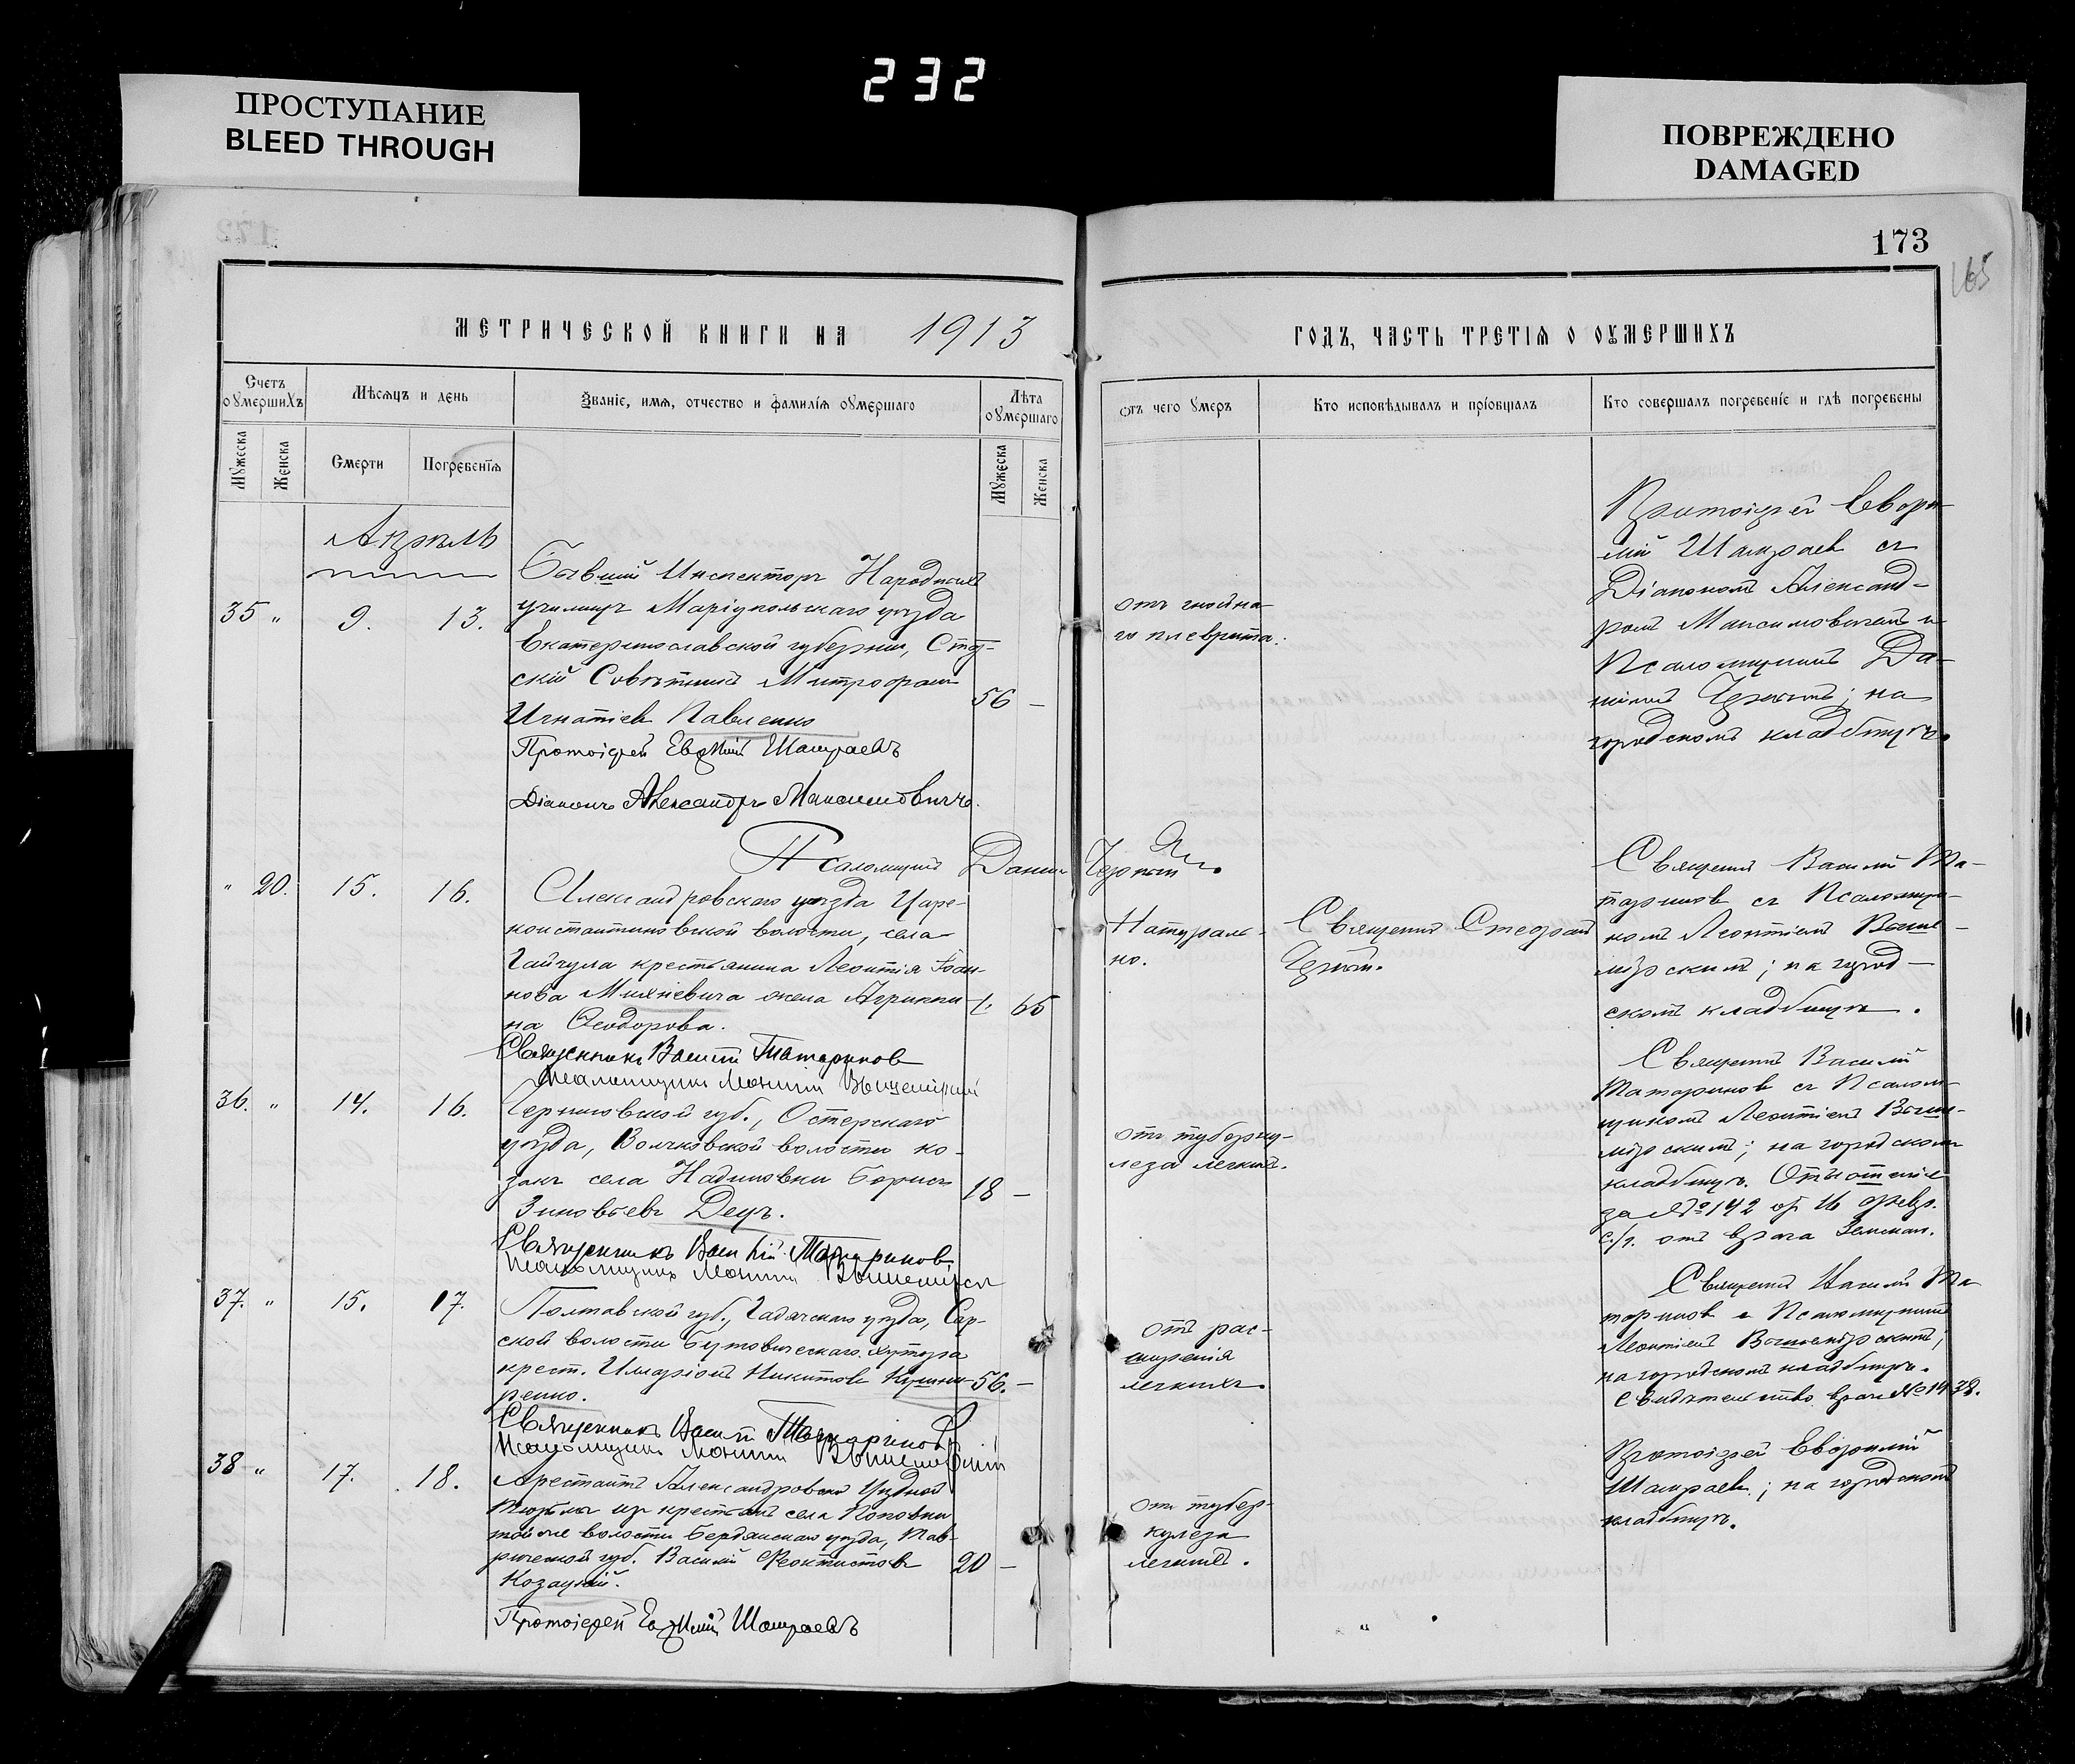 232
ПРОСТУПАНИЕ
BLEED THROUGH
ПОВРЕЖДЕНО
DAMAGED
173
165
МЕТРИЧЕСКОЙ КНИГИ НА 1913 ГОДЪ, ЧАСТЬ ТРЕТІЯ О ОУМЕРШИХЪ
Счетъ оумершихъ
Мѣсяцъ и день
Званіе, имя, отчество и фамилія оумершаго
Лѣта оумершаго
отъ чего умеръ
Кто исповѣдывалъ и пріобщалъ
Кто совершалъ погребеніе и гдѣ погребены
Мужеска
Женска
Смерти
Погребенія
Мужеска
Женска
Апрѣль
35 "
9.
13.
Бывшій Инспекторъ Народныхъ
училищъ Маріупольскаго уѣзда
Екатеринославской губерніи, Стат-
скій Совѣтникъ Митрофанъ
Игнатіевъ Павленко
56 -
Протоіерей Евфимій Шампаевъ
Діаконъ Александръ Максимовичъ.
Псаломщикъ Даніилъ Черный
отъ гнойна-
го плеврита.
Протоіерей Евфи-
мій Шампаевъ съ
Діакономъ Александ-
ромъ Максимовичемъ и
Псаломщикомъ Да-
ніиломъ Чернымъ; на
городскомъ кладбищѣ.
" 20.
15.
16.
Александровскаго уѣзда Царе-
константиновской волости, села
Гайчула крестьянина Леонтія Іоан-
нова Михневича жена Агриппи-
на Ѳеодорова.
65
Священникъ Василій Татариновъ
Псаломщикъ Леонтій Вышемірскій
Натураль-
но.
Священникъ Стефанъ
Черный.
Священникъ Василій Та-
тариновъ съ Псаломщи-
комъ Леонтіемъ Выше-
мірскимъ; на город-
скомъ кладбищѣ.
36. "
14.
16.
Черниговской губ., Остерскаго
уѣзда, Волчковской волости ко-
закъ села Надиновки Борисъ
Зиновьевъ Децъ.
18 -
Священникъ Василій Татариновъ
Псаломщикъ Леонтій Вышемірскій
отъ туберку-
леза легкихъ.
Священникъ Василій
Татариновъ съ Псалом-
щикомъ Леонтіемъ Выше-
мірскимъ; на городскомъ
кладбищѣ. Отношеніе
за № 142 от 16
с/г. отъ врача
37. "
15.
17.
Полтавской губ., Гадячскаго уѣзда, Сар-
ской волости Бутовическаго хутора
крест. Иларіонъ Никитовъ Кушни-
ренко.
56. -
Священникъ Василій Татариновъ
Псаломщикъ Леонтій Вышемірскій
отъ рас-
ширенія
легкихъ.
Священникъ Василій Та-
тариновъ съ Псаломщикомъ
Леонтіемъ Вышемірскимъ;
на городскомъ кладбищѣ.
Свидѣтельство врача № 1438.
38 "
17.
18.
Арестантъ Александровской Уѣздной
Тюрьмы изъ крестьянъ села Поповки
той же волости Бердянскаго уѣзда, Тав-
рической губ. Василій Феоктистовъ
Козацкій.
20 -
Протоіерей Евфимій Шампаевъ
отъ тубер-
кулеза
легкихъ.
Протоіерей Евфимій
Шампаевъ; на городскомъ
кладбищѣ.